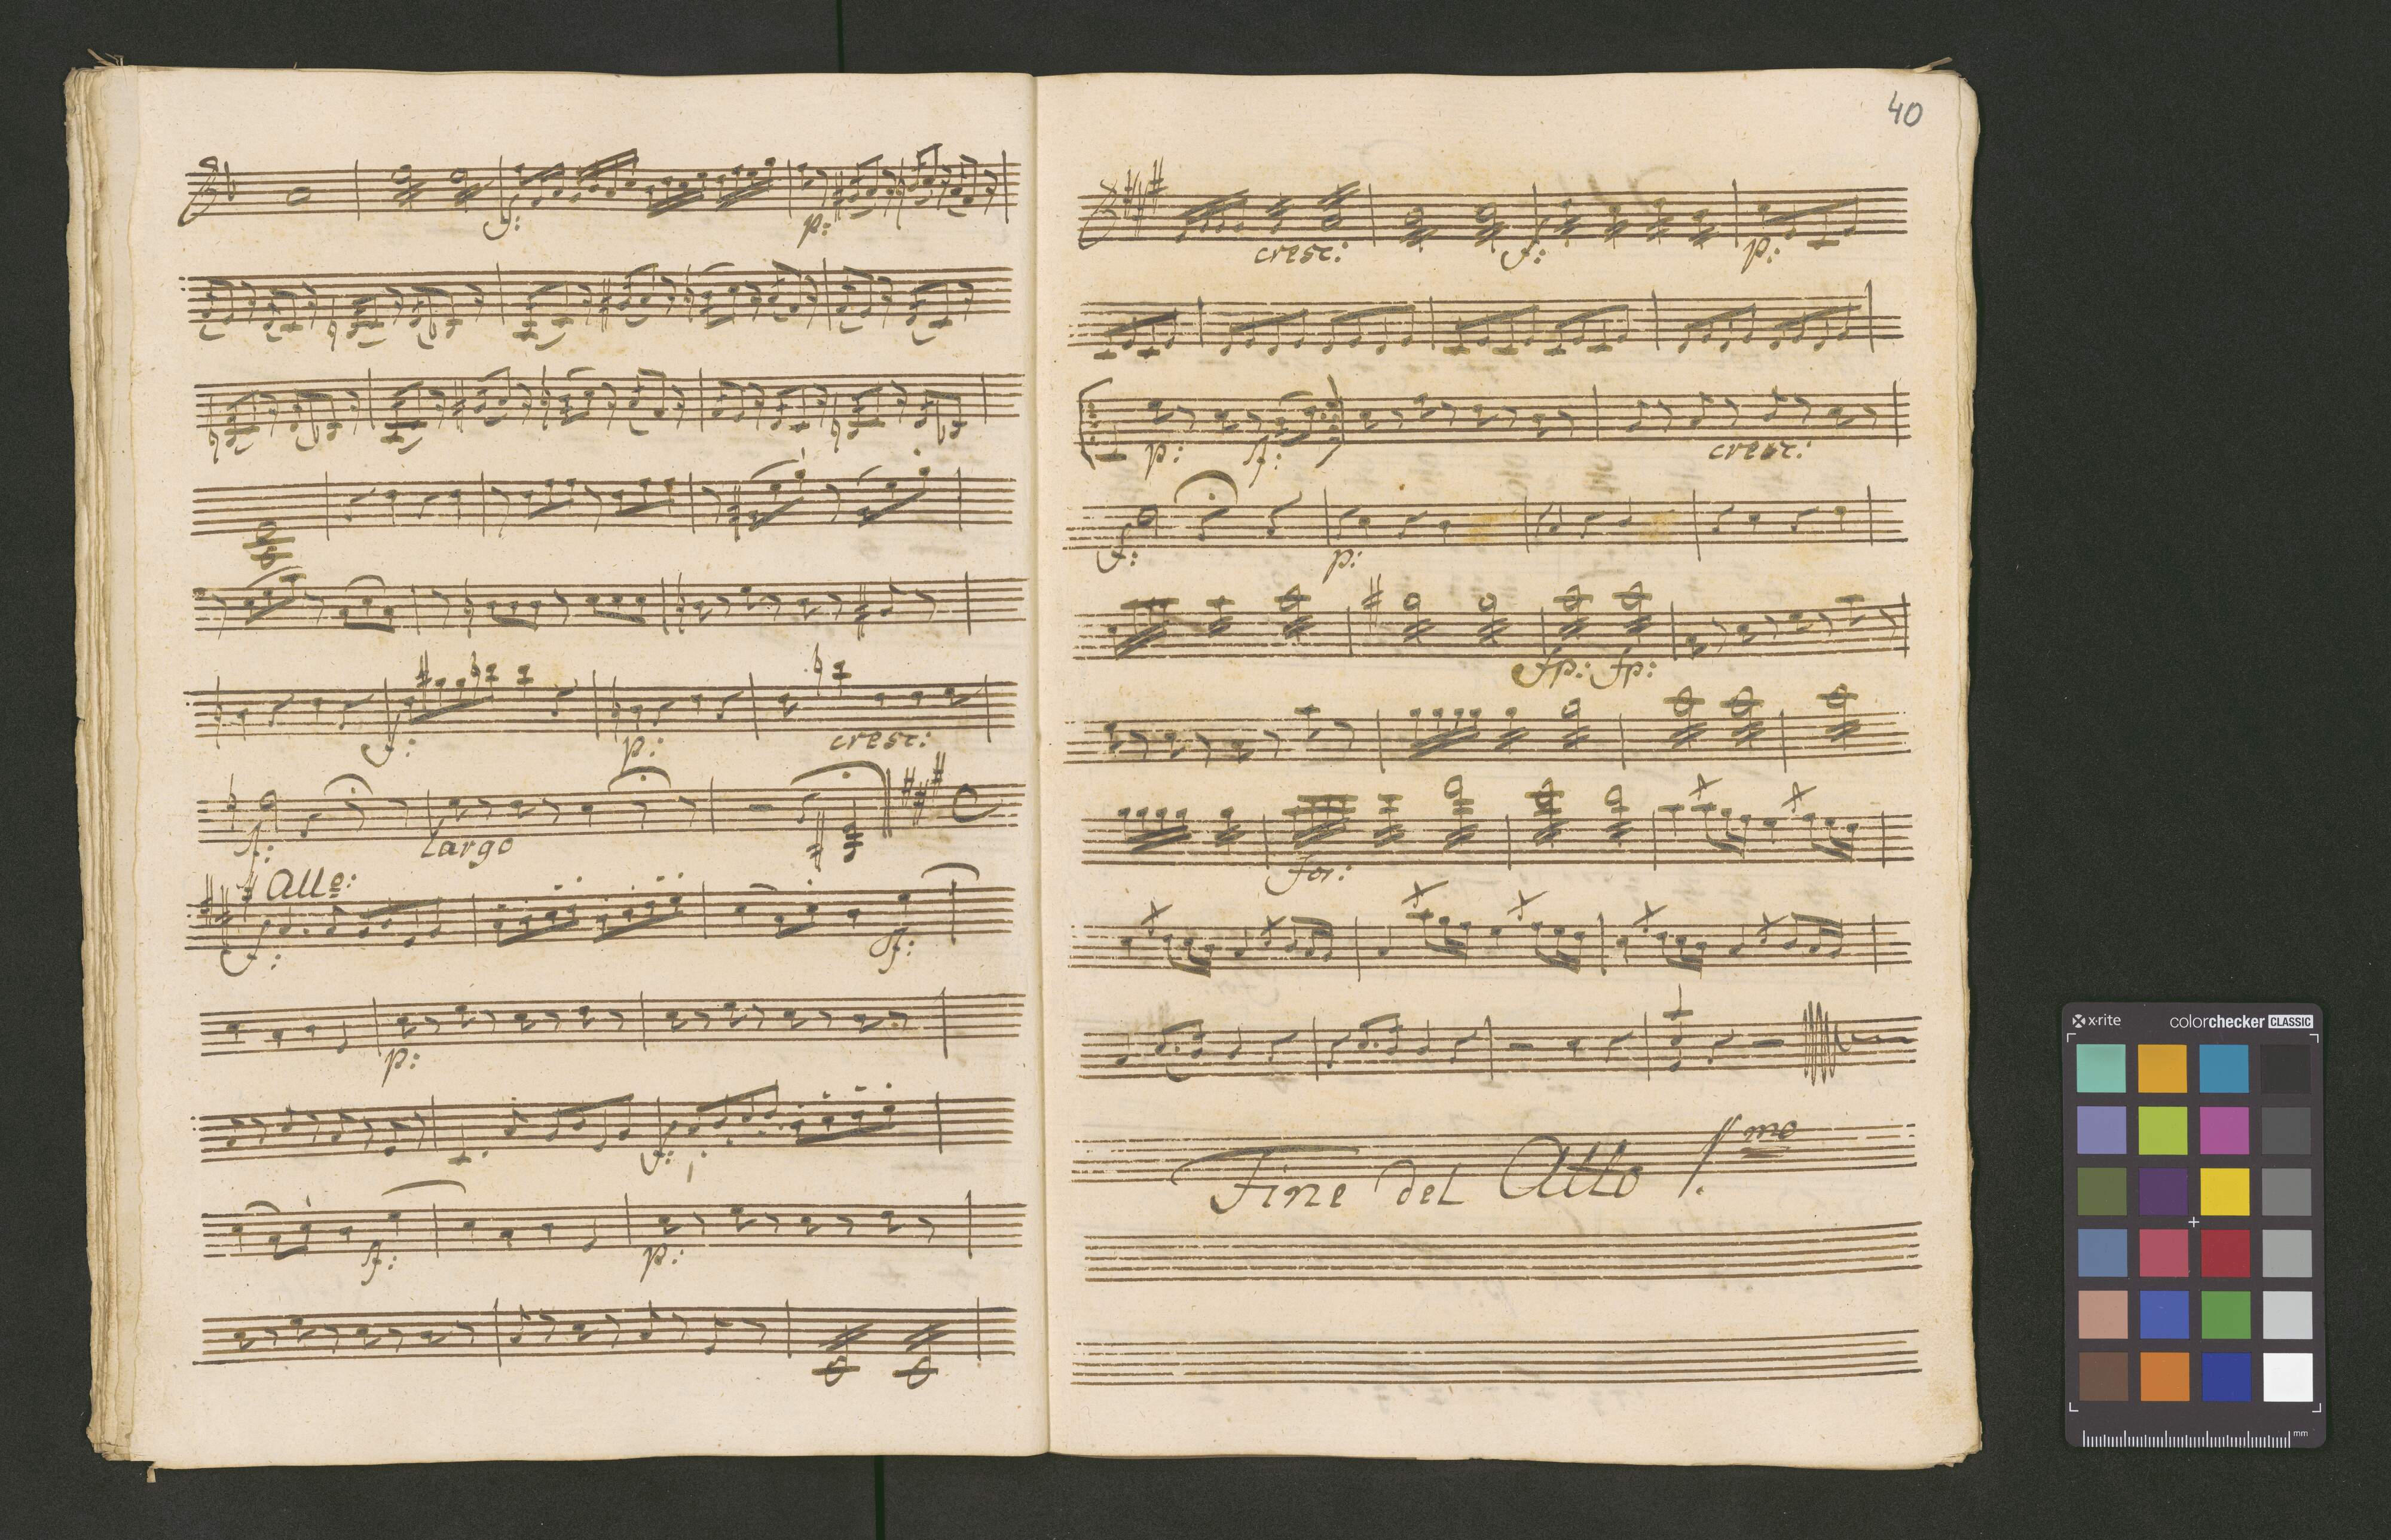 f: p:
f: p: cresc:
f: Largo
Allo:
f: f:
p:
f:
f: p:
40
cresc: f: p:
p: f: cresc:
f: p:
fp: fp:
for:
Fine del Atto 1.mo
x-rite colorchecker CLASSIC
mm